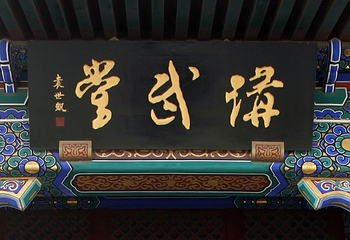 講武堂
袁世凱